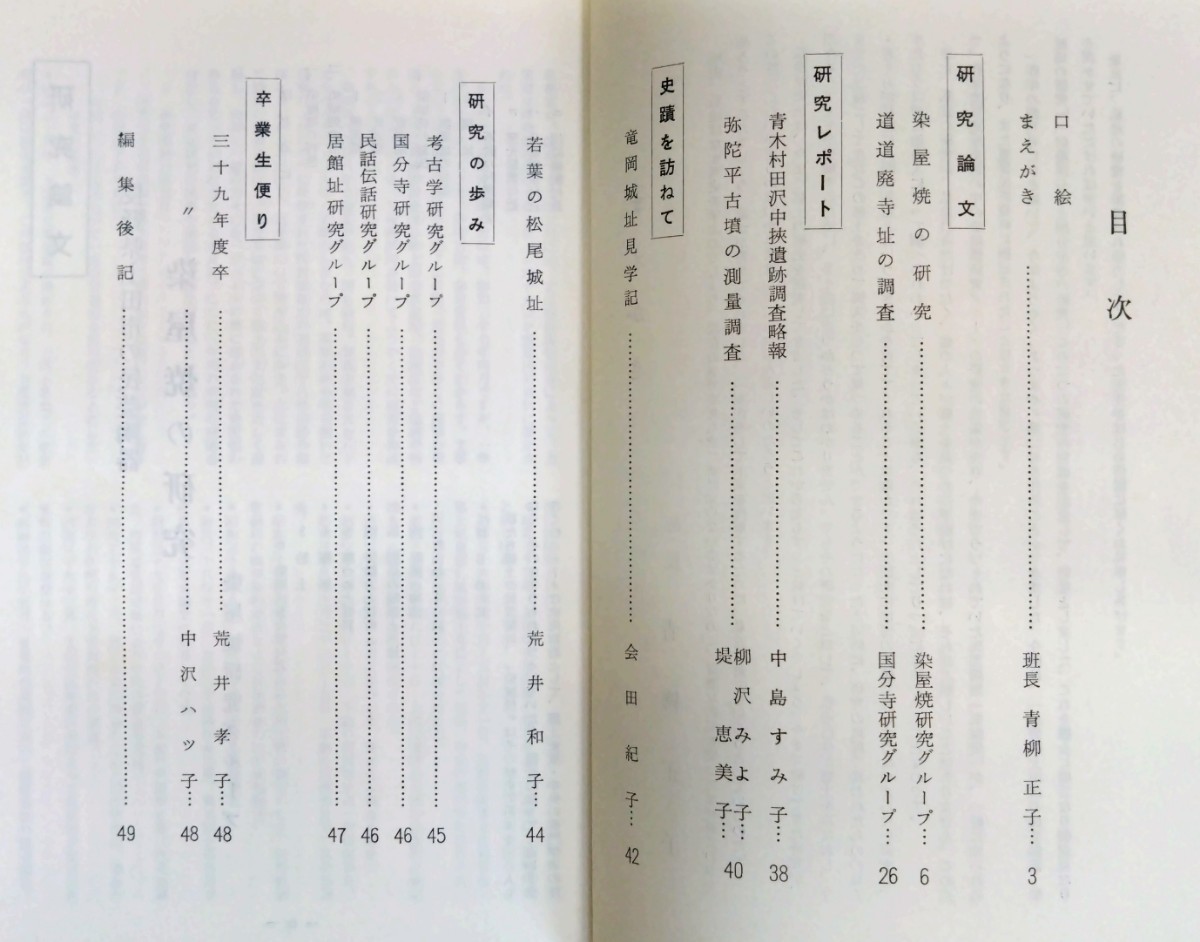 目次
口絵
まえがき……班長 青柳正子…3
研究論文
染屋焼の研究……染屋焼研究グループ…6
道道廃寺址の調査……国分寺研究グループ…26
研究レポート
青木村田沢中挾遺跡調査略報……中島すみ子…38
弥陀平古墳の測量調査……柳沢みよ子…40
堤恵美子…
史蹟を訪ねて
竜岡城址見学記……会田紀子…42
若葉の松尾城址……荒井和子…44
研究の歩み
考古学研究グループ……45
国分寺研究グループ……46
民話伝話研究グループ……46
居館址研究グループ……47
卒業生便り
三十九年度卒……荒井孝子…48
〃……中沢ハツ子…48
編集後記……49